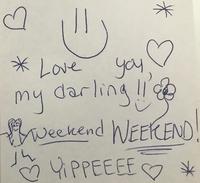 Love you,
my darling!!
weekend WEEKEND!
YiPPEEEE